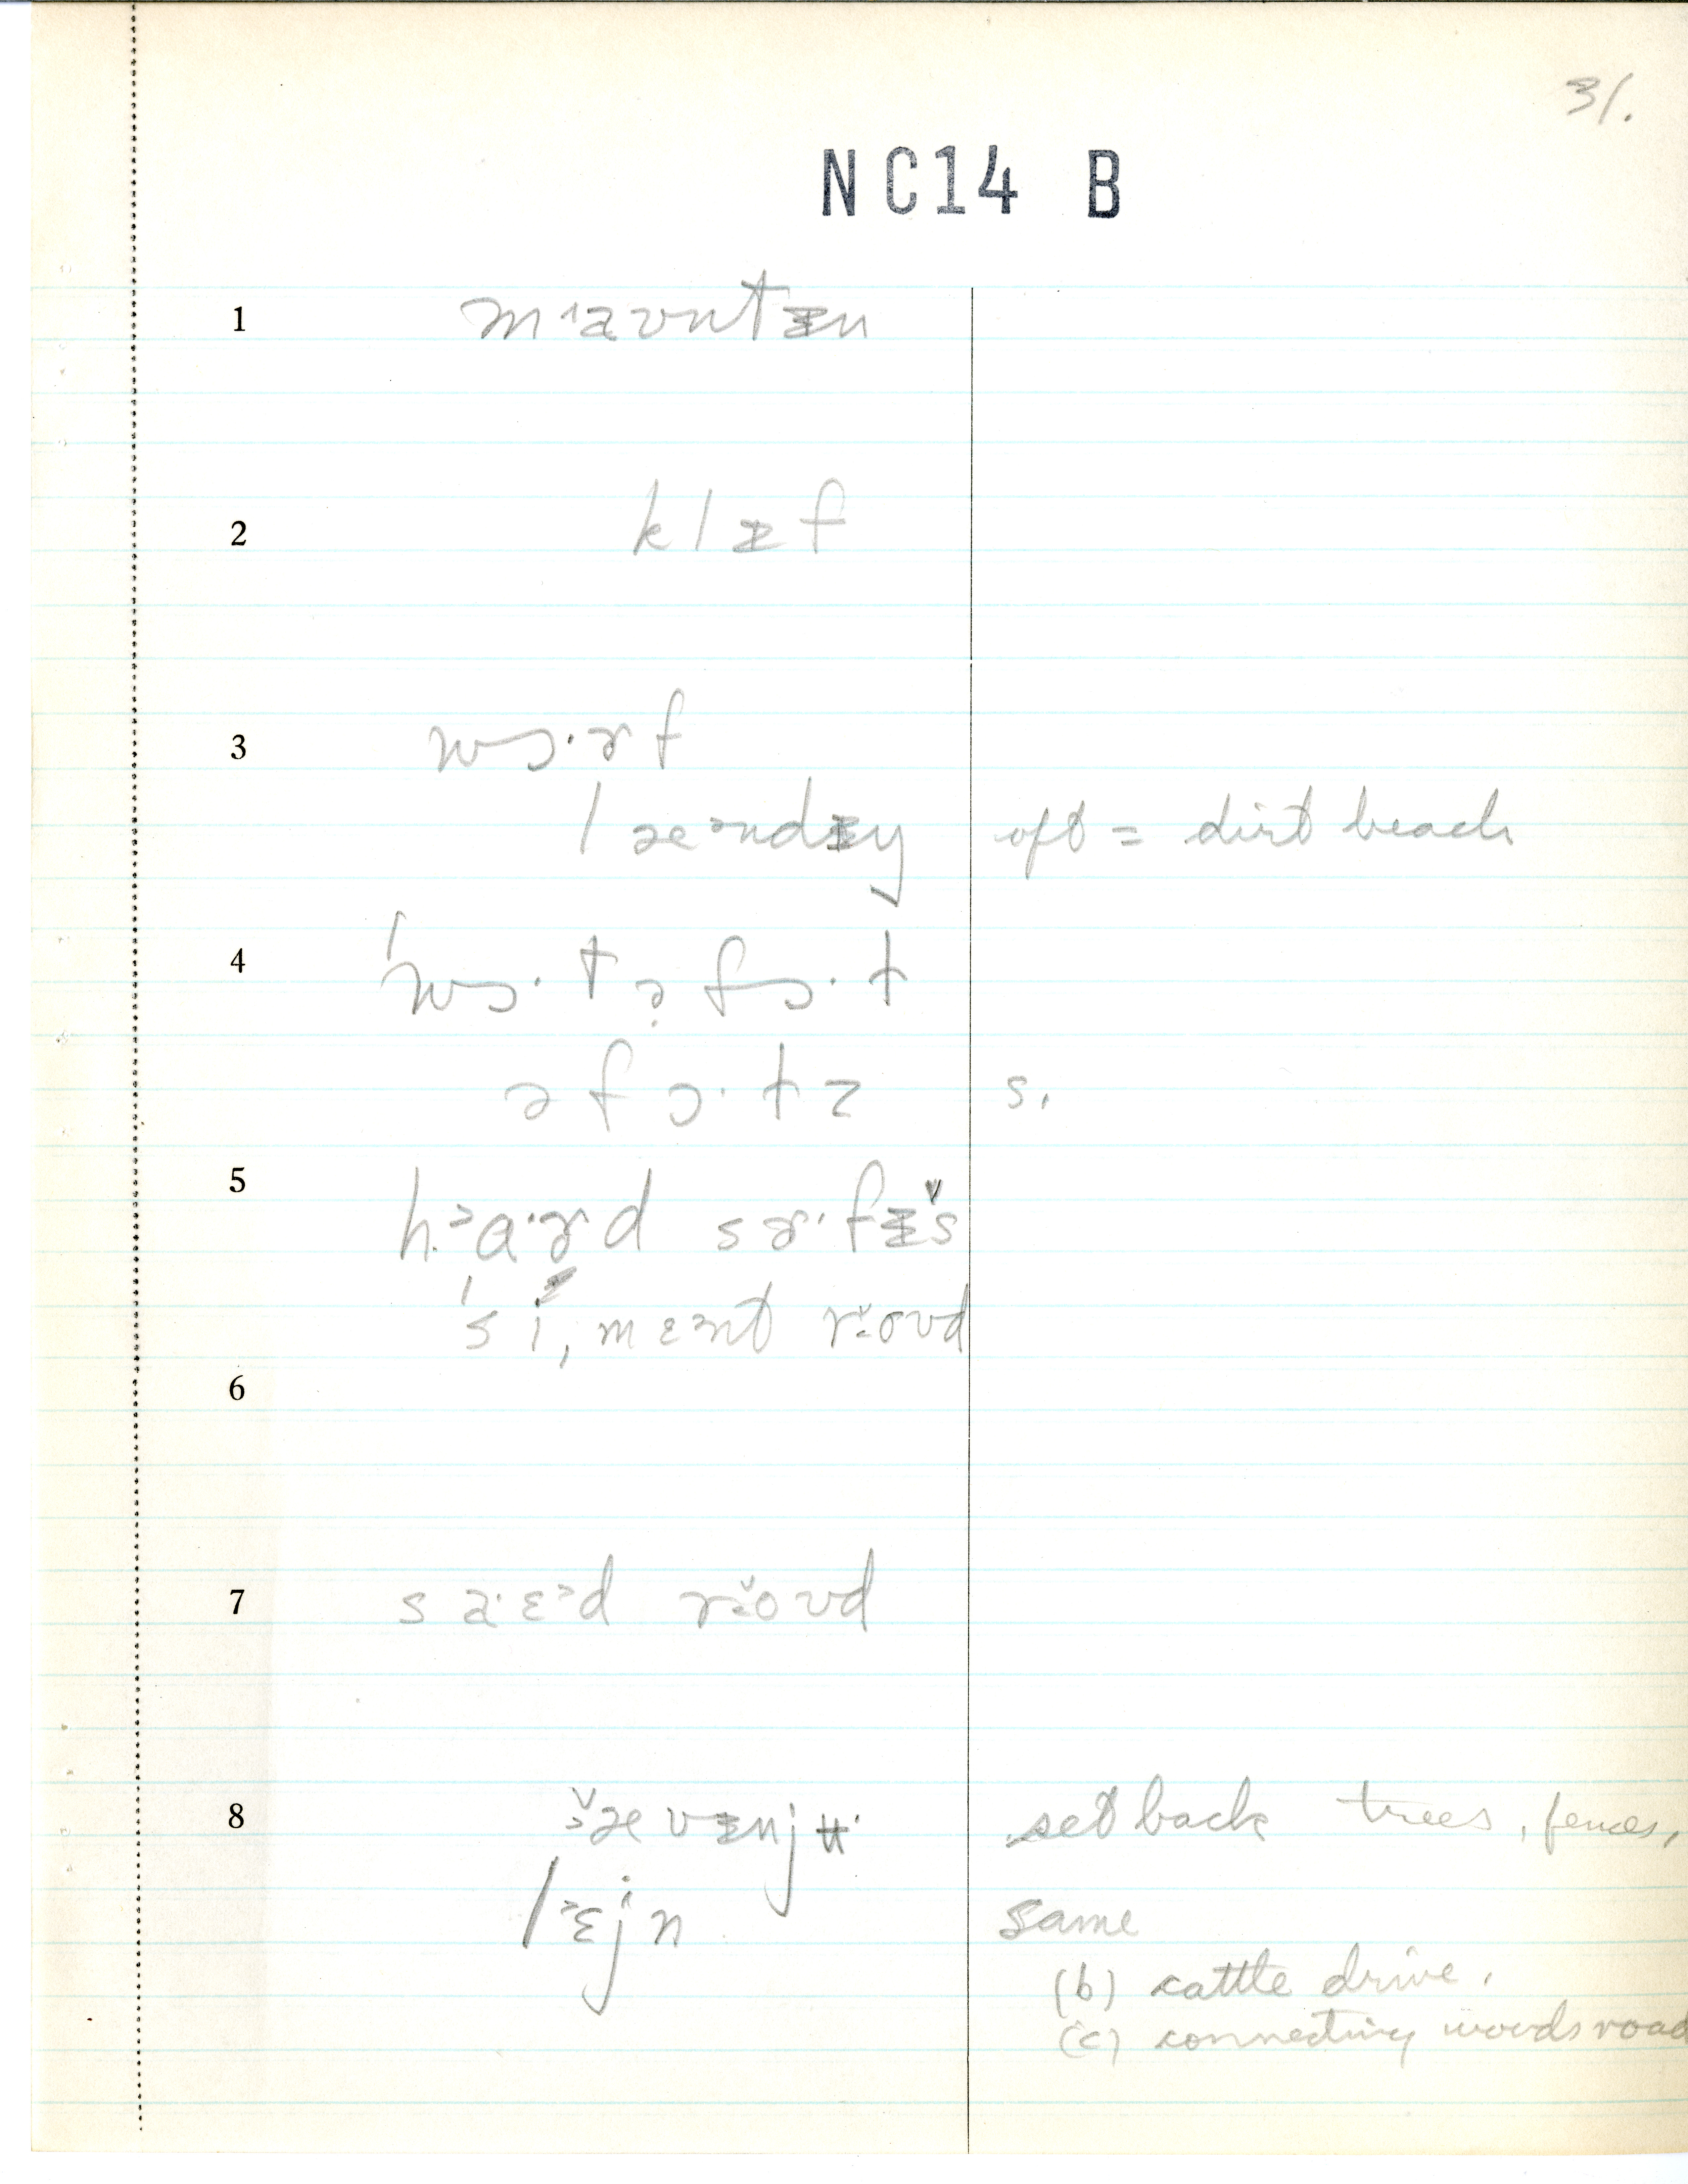 31.
NC14 B
1 mꞌaʊntᵻn
2 klᵻf
3 wɔ·ɚf
læᵊndᵻŋ oft = dirt beach
4 ˈwɔ·tə̣fɔ·t
əfɔ·tz s.
5 h.ᵊɑ·ɚd sɚ·fᵻ̌s
ˈsi,mɛᵊnt rɜ̌oʊd
6
7 sa·ɛᵊd rɜ̌oʊd
8 ˇævᵻnjʉ· set back trees, fences,
lᵊɛjn same
(b) cattle drive.
(c) connecting woods road